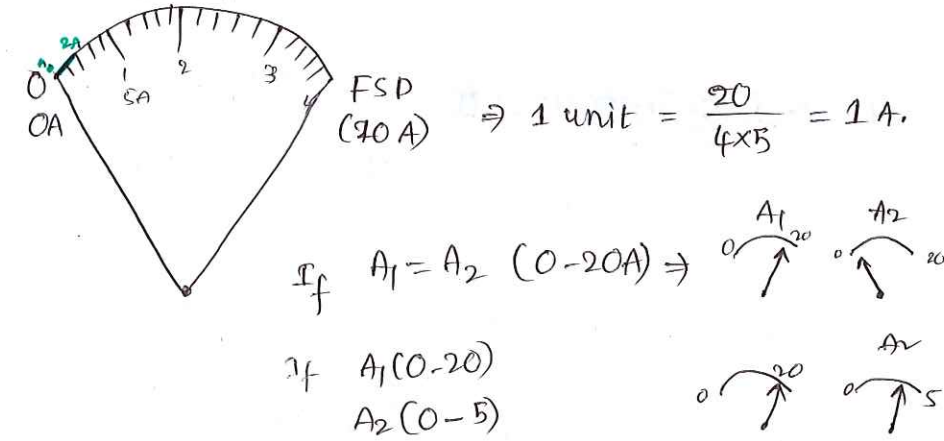 2A
0
5A
2
3
4
0A
FSD
(20 A)
⇒ 1 unit = 20 / 4×5 = 1 A.
If A1 = A2 (0-20A) ⇒
A1
0
20
A2
0
20
If A1(0-20)
A2(0-5)
0
20
A2
0
5